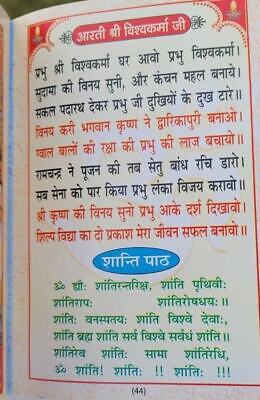 आरती श्री विश्वकर्मा जी
प्रभु श्री विश्वकर्मा घर आवो प्रभु विश्वकर्मा।
सुदामा की विनय सुनी, और कंचन महल बनाये।
सकल पदारथ देकर प्रभु जी दुखियों के दुख टारे।।
विनय करी भगवान कृष्ण ने द्वारिकापुरी बनाओ।
ग्वाल बालों की रक्षा की प्रभु की लाज बचायो।।
रामचन्द्र ने पूजन की तब सेतु बांध रचि डारो।
सब सेना को पार किया प्रभु लंका विजय करावो।।
श्री कृष्ण की विनय सुनो प्रभु आके दर्श दिखावो।
शिल्प विद्या का दो प्रकाश मेरा जीवन सफल बनावो।।
शान्ति पाठ
ॐ द्यौः शांतिरन्तरिक्ष, शांति पृथिवीः
शांतिरापः शांतिरोषधयः।।
शांतिः वनस्पतयः शांति विश्वे देवाः,
शांति ब्रह्म शांति सर्व विश्वे सर्वधं शांति।।
शांतिरेव शांतिः सामा शांतिरेधि,
ॐ शांतिः शांतिः !! शांतिः !!!
(44)